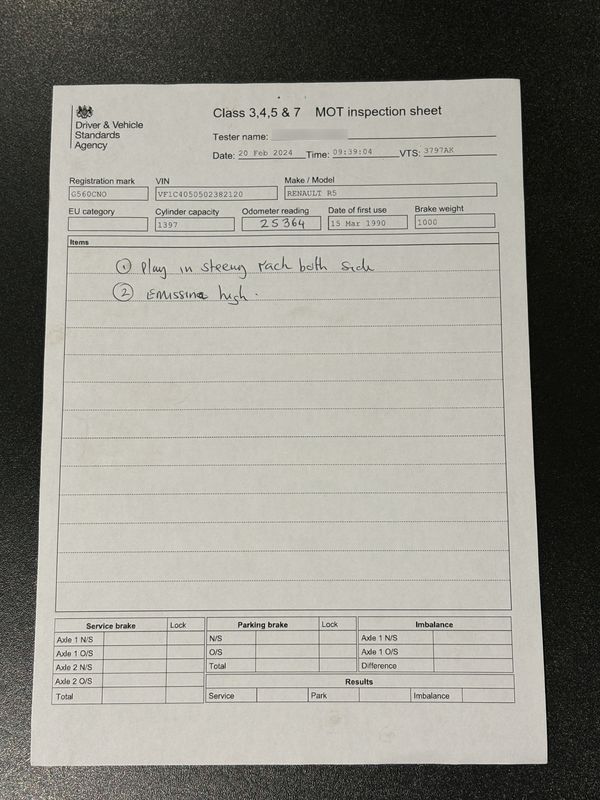 Driver & Vehicle
Standards
Agency
Class 3,4,5 & 7 MOT inspection sheet
Tester name:
Date: 20 Feb 2024 Time: 09:39:04 VTS: 3797AK
Registration mark VIN Make / Model
G560CNO VF1C4050502382120 RENAULT R5
EU category Cylinder capacity Odometer reading Date of first use Brake weight
1397 25364 15 Mar 1990 1000
Items
① Play in steeng rach both side
② Emissine high.
Service brake Lock Parking brake Lock Imbalance
Axle 1 N/S N/S Axle 1 N/S
Axle 1 O/S O/S Axle 1 O/S
Axle 2 N/S Total Difference
Axle 2 O/S Results
Total Service Park Imbalance